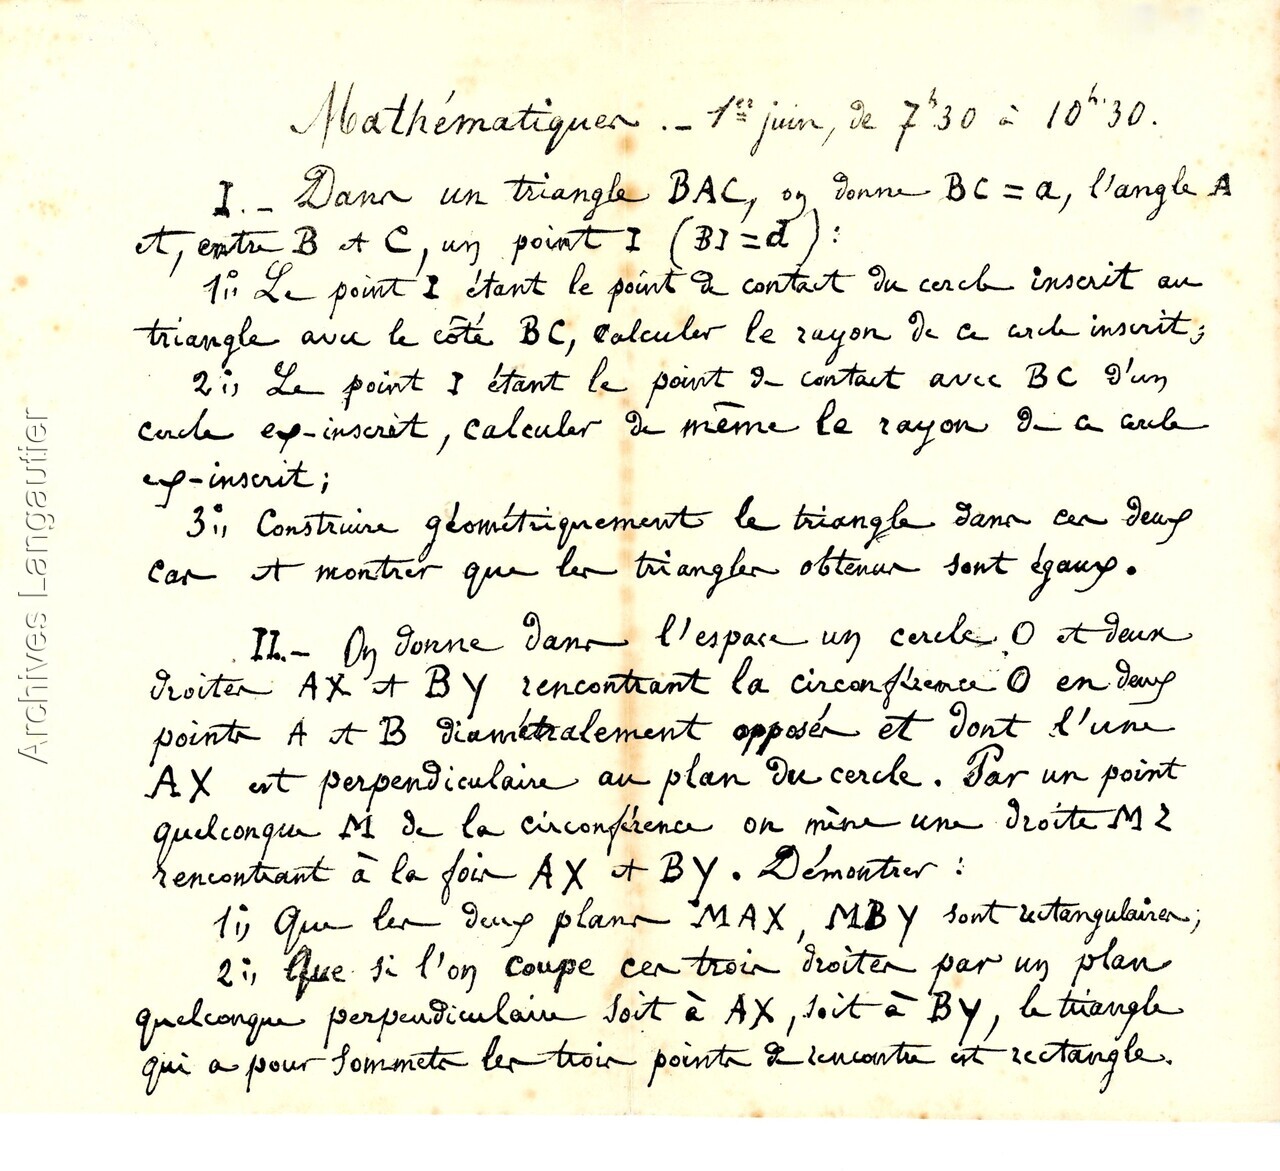 Mathématiques. – 1er juin, de 7h30 à 10h.30.
I. – Dans un triangle BAC, on donne BC = a, l'angle A
et, entre B et C, un point I (BI = d) :
1°; Le point I étant le point de contact du cercle inscrit au
triangle avec le côté BC, calculer le rayon de ce cercle inscrit;
2°; Le point I étant le point de contact avec BC d'un
cercle ex-inscrit, calculer de même le rayon de ce cercle
ex-inscrit;
3°; Construire géométriquement le triangle dans ces deux
cas et montrer que les triangles obtenus sont égaux.
II. – On donne dans l'espace un cercle O et deux
droites AX et BY rencontrant la circonférence O en deux
points A et B diamétralement opposés et dont l'une
AX est perpendiculaire au plan du cercle. Par un point
quelconque M de la circonférence on mène une droite MZ
rencontrant à la fois AX et BY. Démontrer :
1°; Que les deux plans MAX, MBY sont rectangulaires;
2°; Que si l'on coupe ces trois droites par un plan
quelconque perpendiculaire soit à AX, soit à BY, le triangle
qui a pour sommets les trois points de rencontre est rectangle.
Archives Langautier